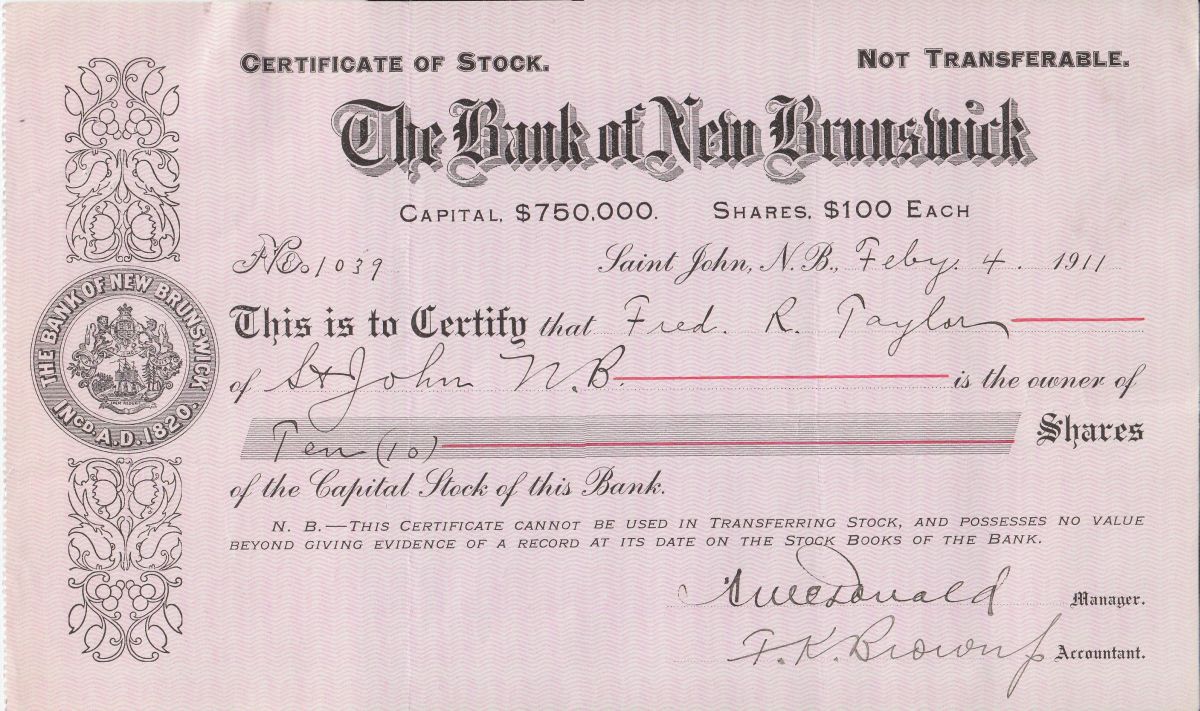 CERTIFICATE OF STOCK. NOT TRANSFERABLE.
The Bank of New Brunswick
CAPITAL, $750,000. SHARES, $100 EACH
No. 1039 Saint John, N.B., Feby. 4. 1911
This is to Certify that Fred. R. Taylor
of St John N.B. is the owner of
Ten (10) Shares
of the Capital Stock of this Bank.
N. B.—THIS CERTIFICATE CANNOT BE USED IN TRANSFERRING STOCK, AND POSSESSES NO VALUE
BEYOND GIVING EVIDENCE OF A RECORD AT ITS DATE ON THE STOCK BOOKS OF THE BANK.
Manager.
F. K. Brown Accountant.
THE BANK OF NEW BRUNSWICK
INCD. A.D. 1820.